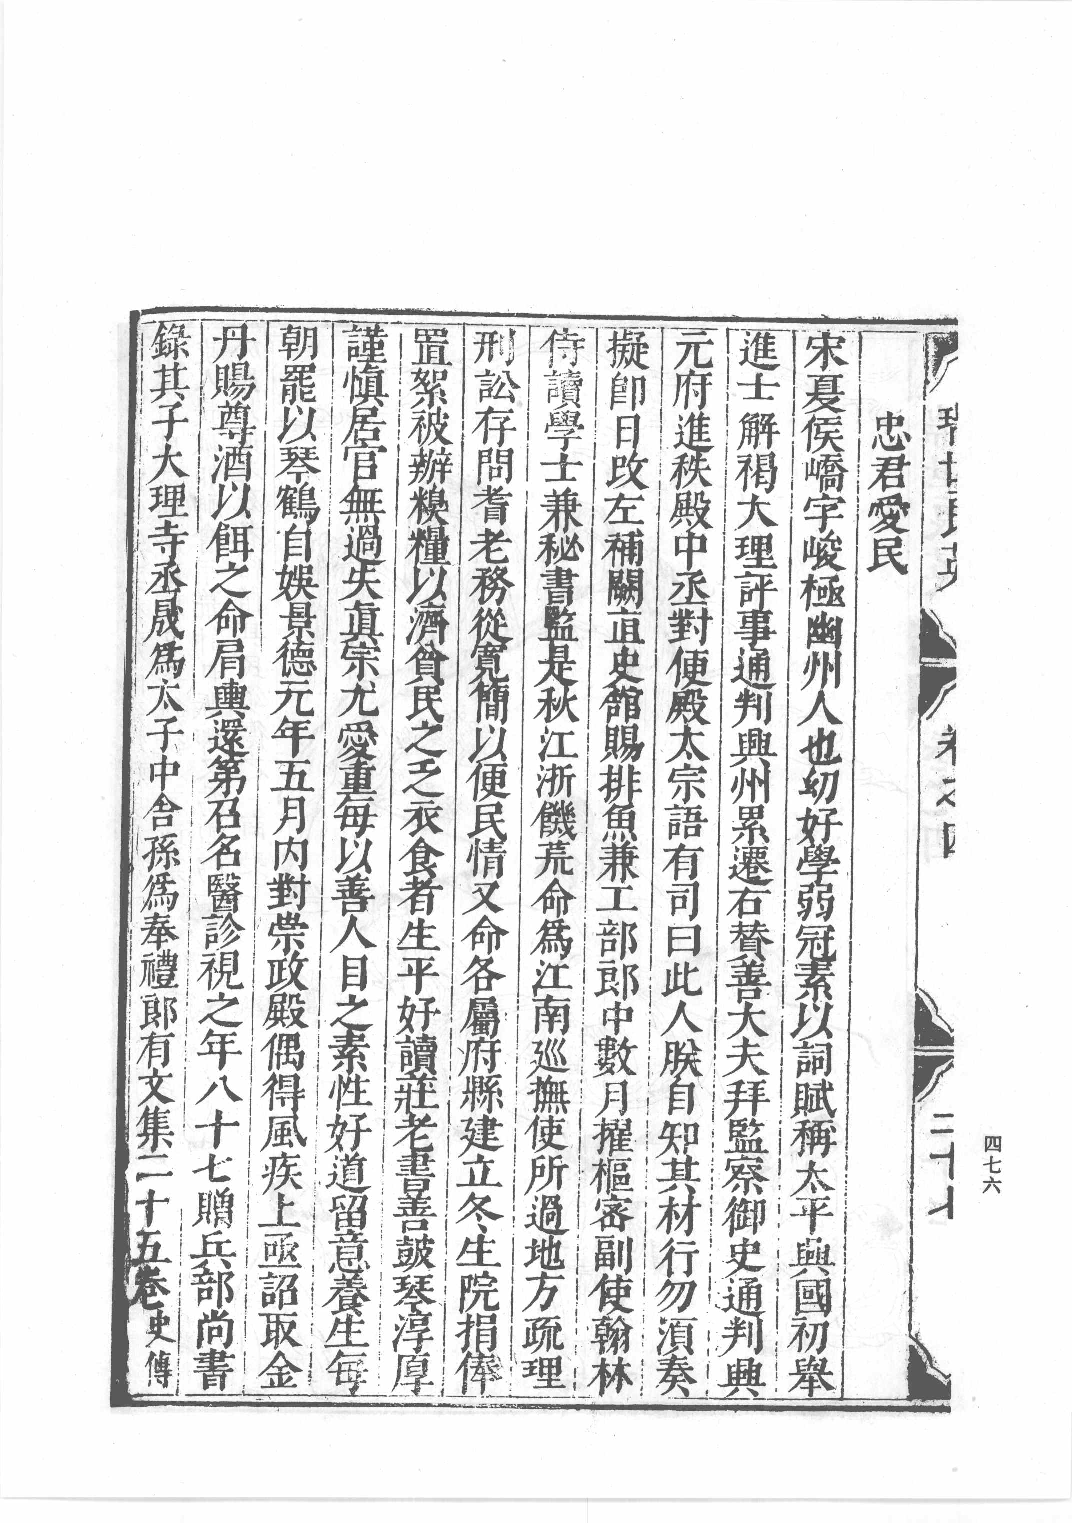 忠君愛民
宋夏侯嶠字峻極幽州人也幼好學弱冠素以詞賦稱太平興國初舉
進士解褐大理評事通判興州累遷右贊善大夫拜監察御史通判興
元府進秩殿中丞對便殿太宗語有司曰此人朕自知其材行勿湏奏
擬卽日改左補闕直史館賜排魚兼工部郎中數月擢樞密副使翰林
侍讀學士兼秘書監是秋江浙饑荒命爲江南巡撫使所過地方疏理
刑訟存問耆老務從寬簡以便民情又命各屬府縣建立冬生院捐俸
置絮被辦糗糧以濟貧民之乏衣食者生平好讀莊老書善鼓琴淳厚
謹愼居官無過失眞宗尤愛重每以善人目之素性好道留意養生每
朝罷以琴鶴自娛景德元年五月內對崇政殿偶得風疾上亟詔取金
丹賜尊酒以餌之命肩輿還第召名醫診視之年八十七贈兵部尚書
錄其子大理寺丞晟爲太子中舍孫爲奉禮郎有文集二十五卷史傳
卷之四
二十七
四七六